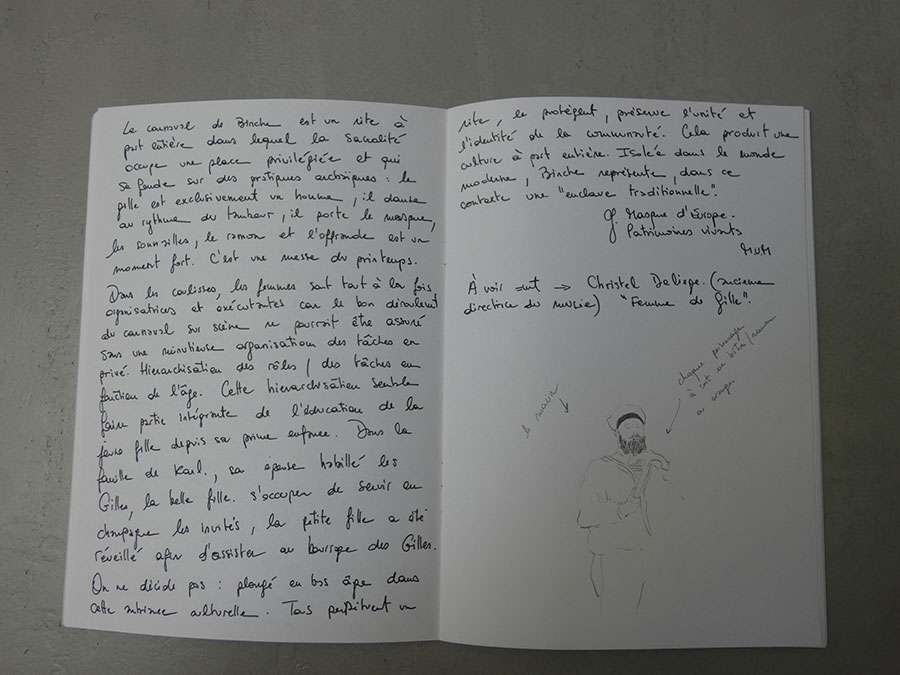 Le carnaval de Binche est un rite à
part entière dans lequel la sacralité
occupe une place privilégiée et qui
se fonde sur des pratiques archaïques : le
gille est exclusivement un homme, il danse
au rythme du tambour, il porte le masque,
les sonnailles, le ramon et l'offrande est un
moment fort. C'est une messe du printemps.
Dans les coulisses, les femmes sont tout à la fois
organisatrices et exécutantes car le bon déroulement
du carnaval sur scène ne pourrait être assuré
sans une minutieuse organisation des tâches en
privé. Hierarchisation des rôles / des tâches en
fonction de l'âge. Cette hierarchisation semble
faire partie intégrante de l'éducation de la
jeune fille depuis sa prime enfance. Dans la
famille de Karl., sa épouse habillé les
Gilles, la belle fille. s'occuper de servir en
champagne les invités, la petite fille a été
réveillé afin d'assister au bourrage des Gilles.
On ne décide pas : plongé en bas âge dans
cette culturelle. Tous perpétuent un
rite, le protègent, préserve l'unité et
l'identité de la communauté. Cela produit une
culture à part entière. Isolée dans le monde
moderne, Binche représente, dans ce
contexte une "enclave traditionnelle".
Masque d'Europe.
Patrimoines vivants
MUM
À voir → Christel Deliège. (ancienne
directrice du musée) "Femme de Gille".
chaque personnage
à
le marin